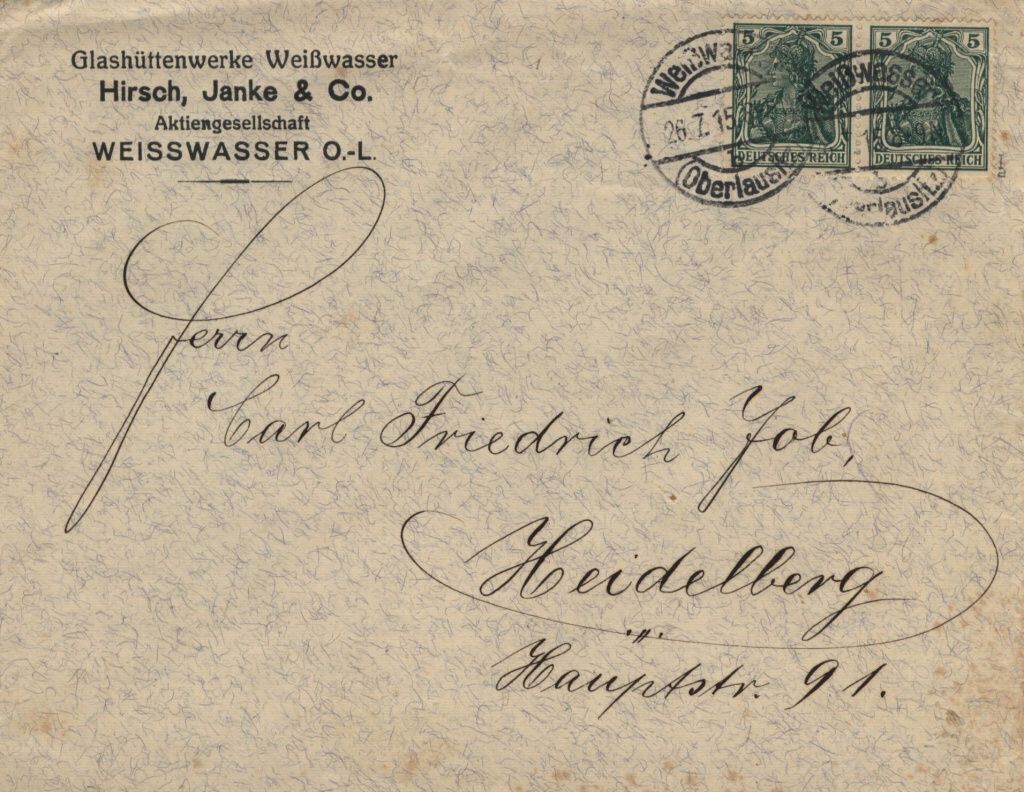 Glashüttenwerke Weißwasser
Hirsch, Janke & Co.
Aktiengesellschaft
WEISSWASSER O.-L.
5 5 5 5
DEUTSCHES REICH DEUTSCHES REICH
Weißwa
26.7.15
(Oberlausit
Weißwasser
15. 8-9
erlausit.)
Herrn
Carl Friedrich Job,
Heidelberg
Hauptstr. 91.